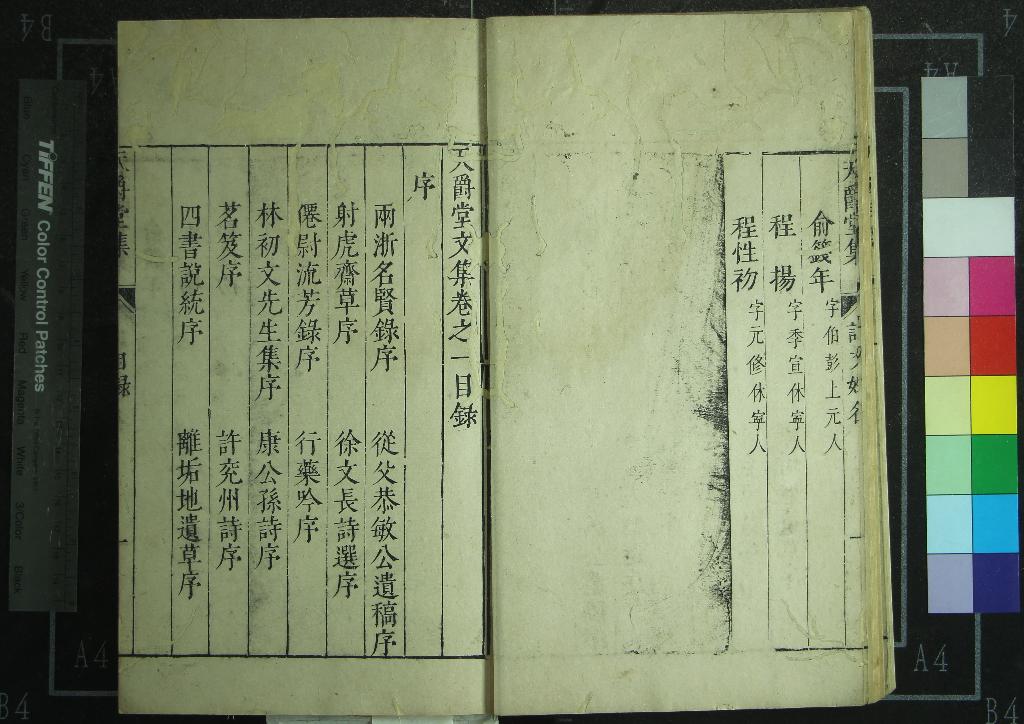 天爵堂集
訂文姓名
俞箴年 字伯彭上元人
程揚 字季宣休寧人
程性初 字元修休寧人
天爵堂文集卷之一目錄
序
兩浙名賢錄序 從父恭敏公遺稿序
射虎齋草序 徐文長詩選序
僊尉流芳錄序 行藥吟序
林初文先生集序 康公孫詩序
茗笈序 許兗州詩序
四書說統序 離垢地遺草序
天爵堂集
目錄
一
TIFFEN Color Control Patches
Blue
Cyan
Green
Yellow
Red
Magenta
White
3/Color
Black
A4
A4
B4
B4
A4
A4
B4